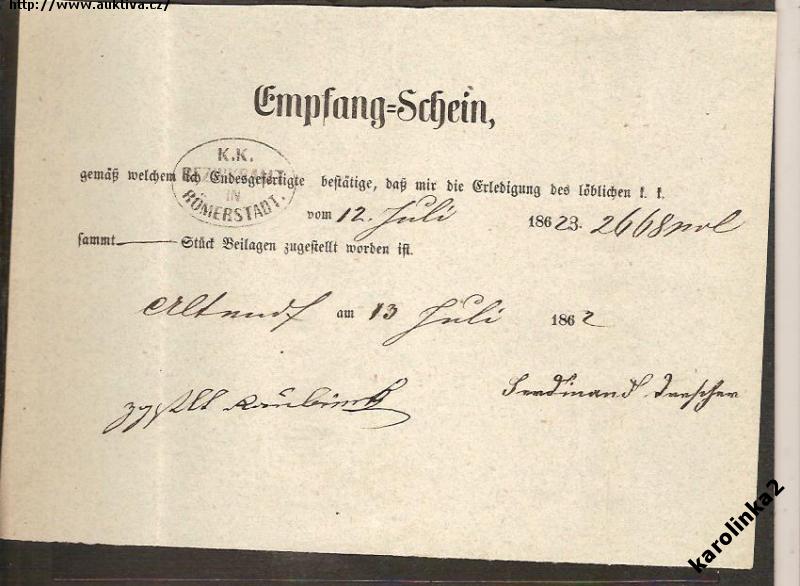 http://www.auktiva.cz/
Empfang=Schein,
K.K.
BEZIRKSAMT
IN
RÖMERSTADT.
gemäß welchem ich Endesgefertigte bestätige, daß mir die Erledigung des löblichen k. k.
vom 12. Juli 1862 2668
sammt Stück Beilagen zugestellt worden ist.
am 13 Juli 1862
Ferdinand
karolinka2